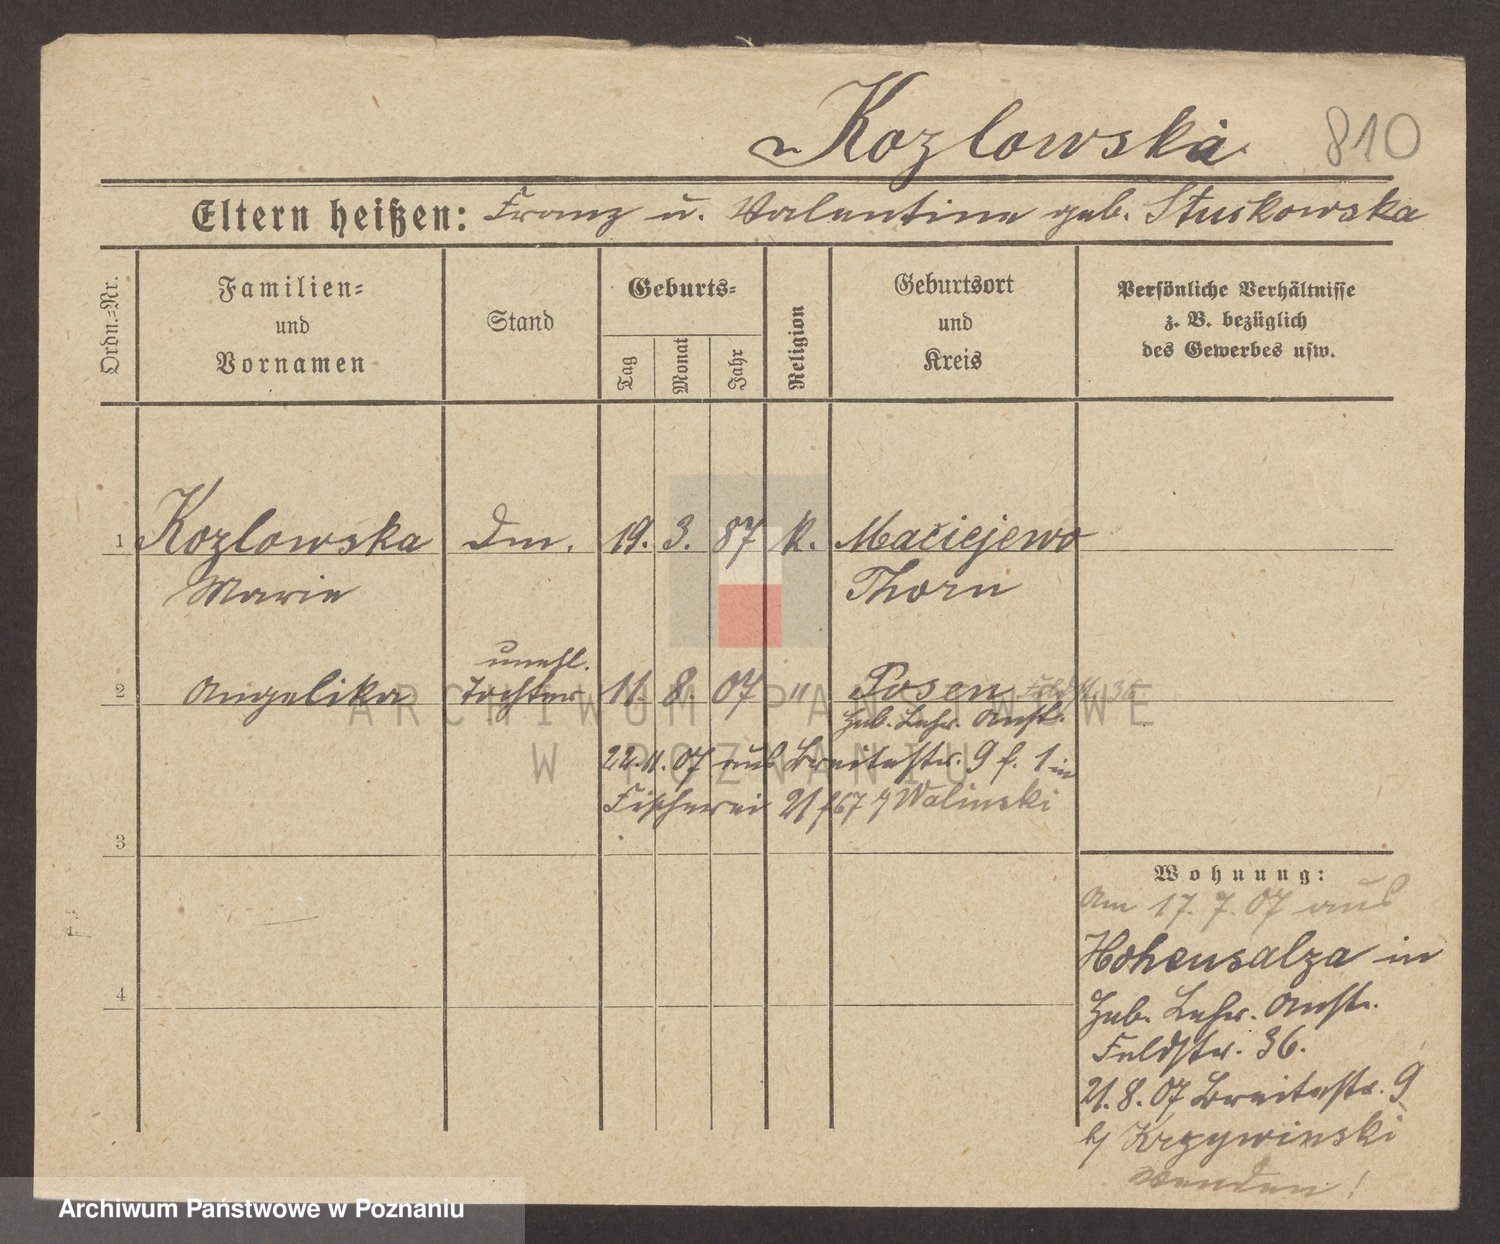 Kozlowska 810
Eltern heißen: Franz u. Valentine geb. Stuckowska
Ordn.-Nr.
Familien-
und
Vornamen
Stand
Geburts-
Tag
Monat
Jahr
Religion
Geburtsort
und
Kreis
Persönliche Verhältnisse
z. B. bezüglich
des Gewerbes usw.
1 Kozlowska Dm. 19. 3. 87 K. Maciejewo
Marie Thorn
unehl.
2 Angelika Tochter 11 8. 07 " Posen
Heb. Lehr. Anst.
22.11.07 aus Breitestr. 9 f. 1 in
Fischerei 21 f67 b/ Walinski
3
Wohnung:
Am 17. 7. 07 aus
Hohensalza in
Heb. Lehr. Anst.
4
Feldstr. 36.
21. 8. 07 Breitestr. 9
b/ Krzywinski
wenden!
ARCHIWUM PAŃSTWOWE
W POZNANIU
Archiwum Państwowe w Poznaniu